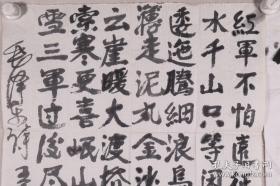 紅軍不怕遠
水千山只等
逶迤騰細浪烏
薄走泥丸金沙
云崖暖大渡
索寒更喜岷山
雪三軍過後尽
毛泽东詩 王